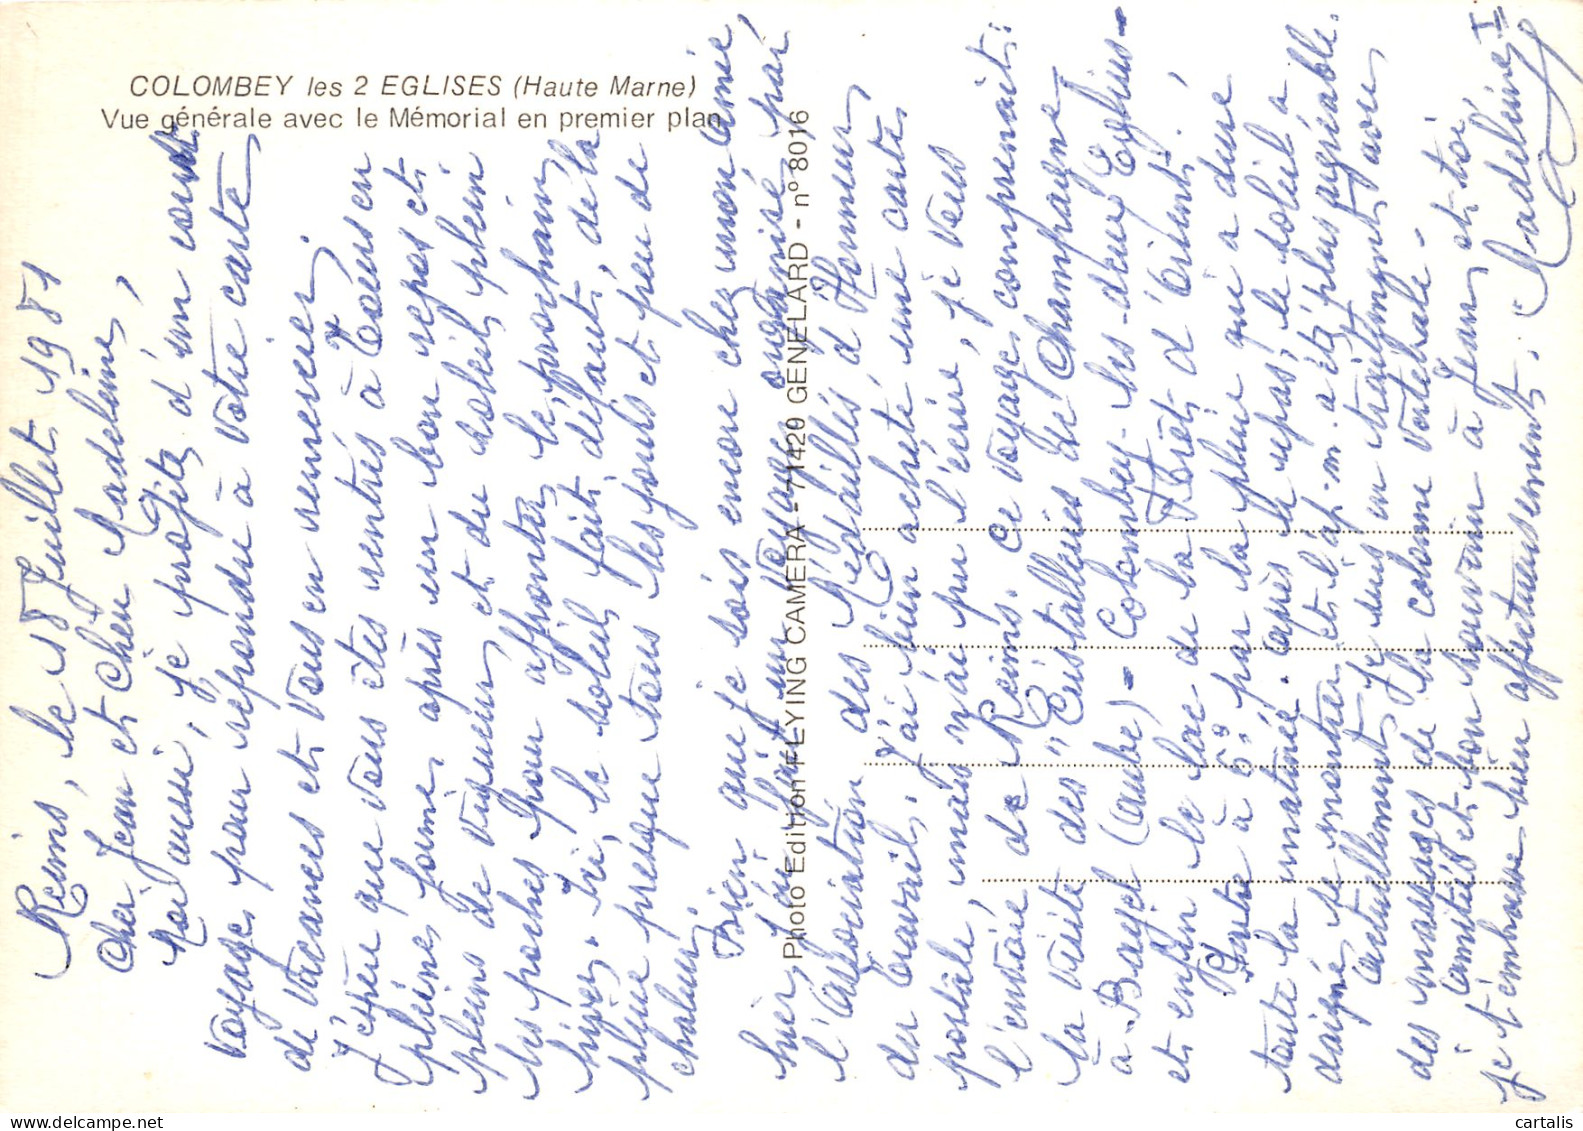 COLOMBEY les 2 EGLISES (Haute Marne)
Vue générale avec le Mémorial en premier plan
Photo Edition FLYING CAMERA - 71420 GENELARD - n° 8016
Reims, le 18 Juillet 1981
Cher Jean et Chère Madeleine,
Moi aussi, je profite d'un court
voyage, pour répondre à votre carte
de vacances et vous en remercier.
J'espère que vous êtes rentrés à Tours en
pleine forme, après un bon repos et
pleins de vigueur et du soleil plein
les poches pour affronter le prochain
hiver. Ici, le soleil fait défaut, de la
pluie presque tous les jours et peu de
chaleur.
Bien que je sois encore chez mon amie
hier, j'ai fait un voyage organisé par
l'Association des Médaillés d'Honneur
du Travail. J'ai bien acheté une carte
postale, mais n'ai pu l'écrire, je vous
l'envoie de Reims. Ce voyage comprenait:
la visite des "Cristalleries de Champagne"
à Bayel (Aube) - Colombey-les-deux Eglises -
et enfin le lac de la Forêt d'Orient.
Partie à 6h par la pluie qui a duré
toute la matinée. Après le repas, le soleil a
daigné se montrer et l'ap-m. a été plus agréable.
Actuellement, je suis en traitement avec
des massages de la colonne vertébrale.
Amitiés et bon souvenir à Jean et toi,
je t'embrasse bien affectueusement.
Madeleine I
cartalis